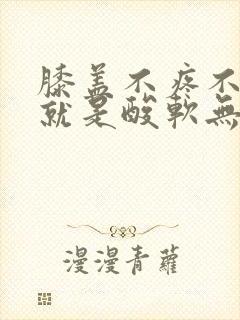 膝盖不疼不
就是酸軟無
漫漫青蘿